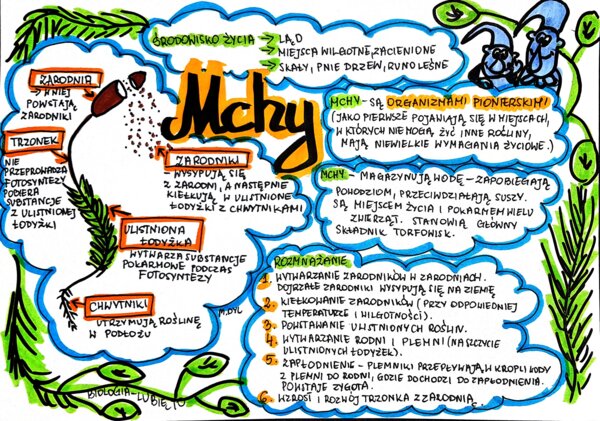 ŚRODOWISKO ŻYCIA → LĄD
→ MIEJSCA WILGOTNE, ZACIENIONE
→ SKAŁY, PNIE DRZEW, RUNO LEŚNE
Mchy
ZARODNIA
→ W NIEJ
POWSTAJĄ
ZARODNIKI
TRZONEK
NIE
PRZEPROWADZA
FOTOSYNTEZY
POBIERA
SUBSTANCJE
Z ULISTNIONEJ
ŁODYŻKI
ZARODNIKI
WYSYPUJĄ SIĘ
Z ZARODNI, A NASTĘPNIE
KIEŁKUJĄ W ULISTNIONE
ŁODYŻKI Z CHWYTNIKAMI
ULISTNIONA
ŁODYŻKA
WYTWARZA SUBSTANCJE
POKARMOWE PODCZAS
FOTOSYNTEZY
CHWYTNIKI
UTRZYMUJĄ ROŚLINĘ
W PODŁOŻU
M.DYL
BIOLOGIA-LUBIĘ TO
MCHY - SĄ ORGANIZMAMI PIONIERSKIMI
(JAKO PIERWSZE POJAWIAJĄ SIĘ W MIEJSCACH,
W KTÓRYCH NIE MOGĄ ŻYĆ INNE ROŚLINY,
MAJĄ NIEWIELKIE WYMAGANIA ŻYCIOWE.)
MCHY - MAGAZYNUJĄ WODĘ - ZAPOBIEGAJĄ
POWODZIOM, PRZECIWDZIAŁAJĄ SUSZY.
SĄ MIEJSCEM ŻYCIA I POKARMEM WIELU
ZWIERZĄT. STANOWIĄ GŁÓWNY
SKŁADNIK TORFOWISK.
ROZMNAŻANIE
1. WYTWARZANIE ZARODNIKÓW W ZARODNIACH.
DOJRZAŁE ZARODNIKI WYSYPUJĄ SIĘ NA ZIEMIĘ
2. KIEŁKOWANIE ZARODNIKÓW (PRZY ODPOWIEDNIEJ
TEMPERATURZE I WILGOTNOŚCI).
3. POWSTAWANIE ULISTNIONYCH ROŚLIN.
4. WYTWARZANIE RODNI I PLEMNI (NA SZCZYCIE
ULISTNIONYCH ŁODYŻEK).
5. ZAPŁODNIENIE - PLEMNIKI PRZEPŁYWAJĄ W KROPLI WODY
Z PLEMNI DO RODNI, GDZIE DOCHODZI DO ZAPŁODNIENIA.
POWSTAJE ZYGOTA.
6. WZROST I ROZWÓJ TRZONKA Z ZARODNIĄ.